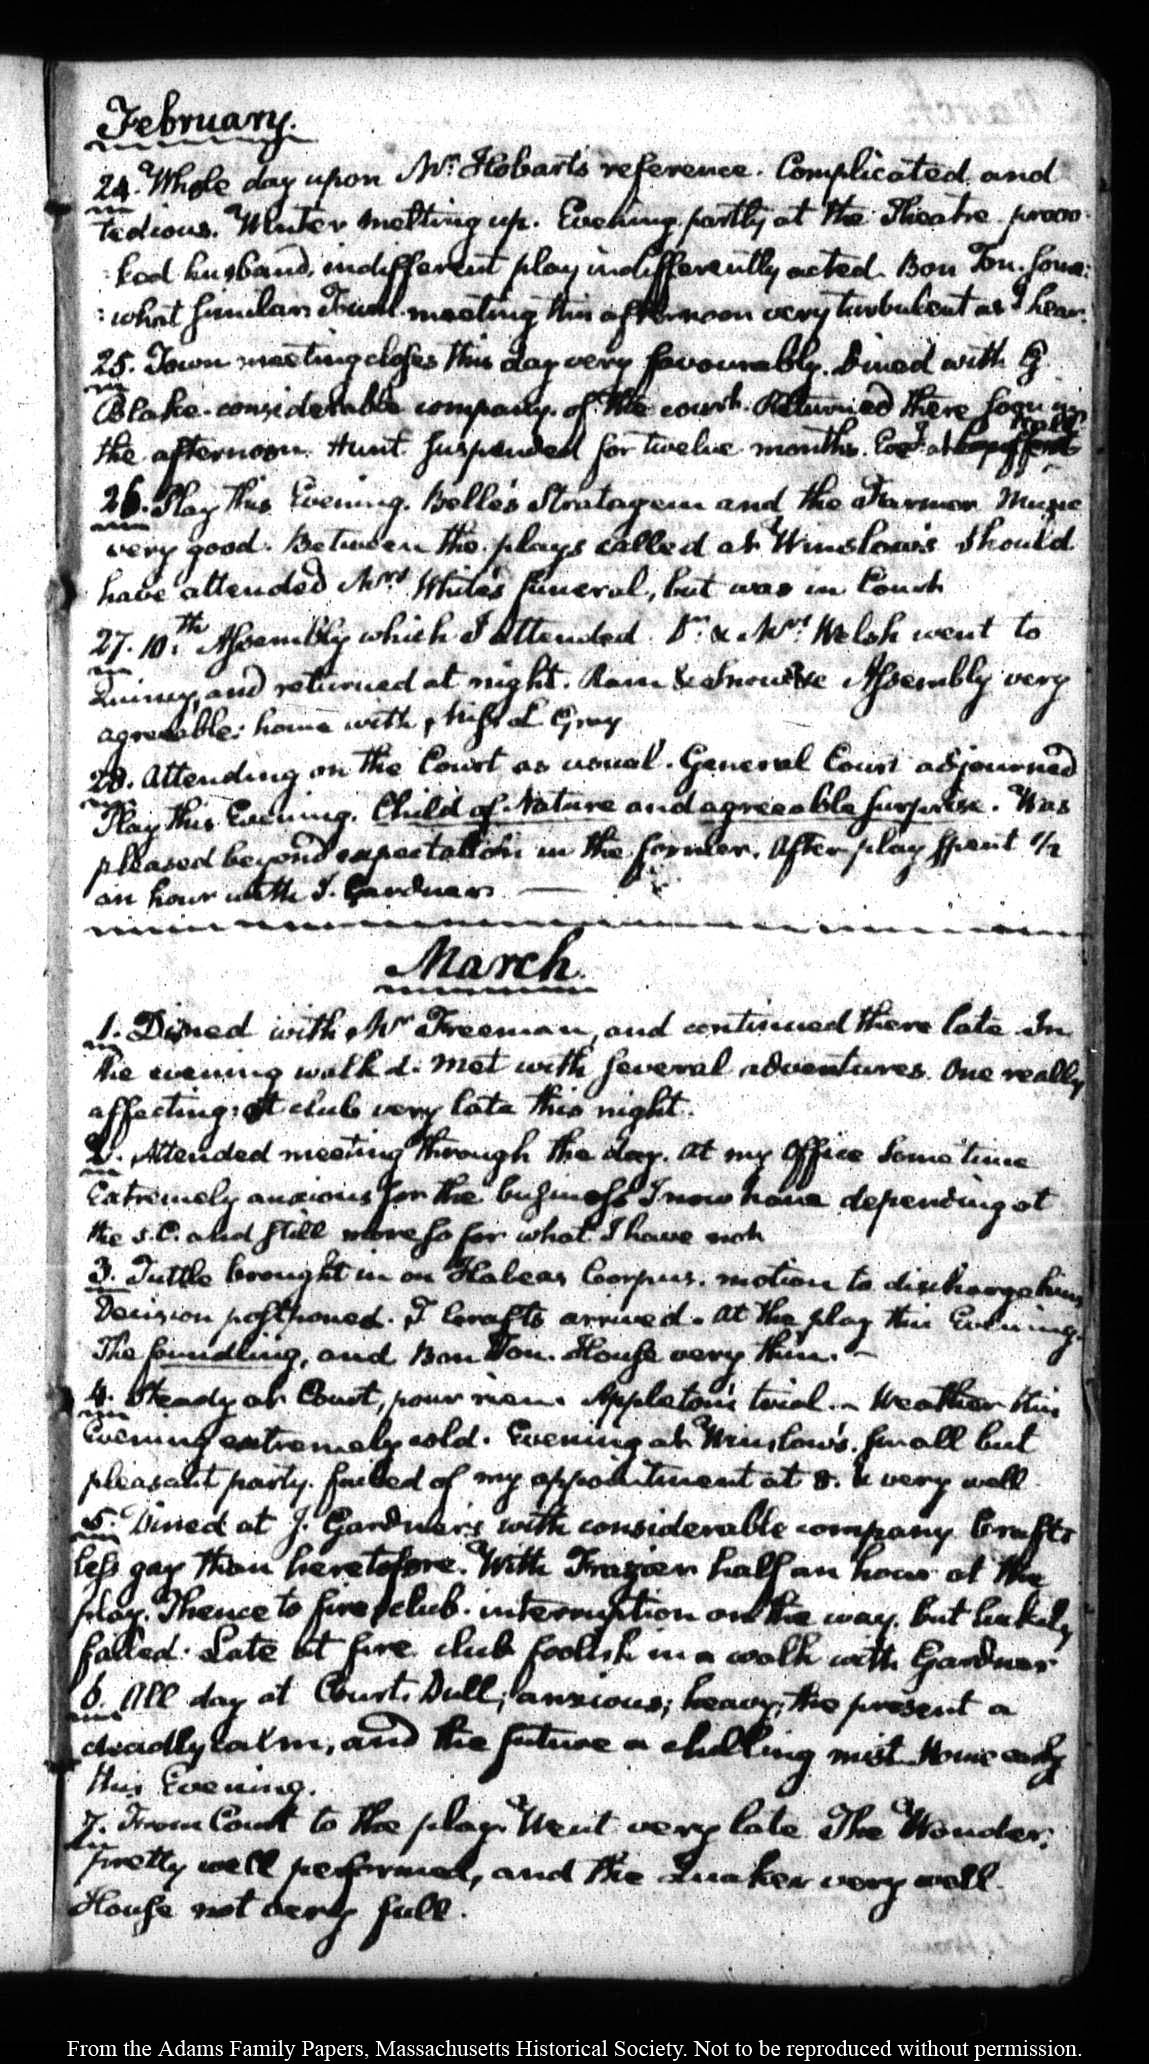 February.
24. Whole day upon Mr. Hobart's reference. Complicated and
tedious. Winter melting up. Evening partly at the Theatre. provo-
:ked husband, indifferent play indifferently acted. Bon Ton. some:
:what similar. Town meeting this afternoon very turbulent as I hear.
25. Town meeting closes this day very favourably. Dined with G
Blake. considerable company. of the court. Returned there soon in
the afternoon. Hunt suspended for twelve months. Eveg. at
26. Play this Evening. Belle's Stratagem and the Farmer. Music
very good. Between the plays called at Winslow's. Should
have attended Mrs. White's funeral, but was in Court
27. 10th. Assembly which I attended. Dr. & Mrs. Welsh went to
Quincy, and returned at night. Rain & Snow. Assembly very
agreeable: home with Miss L Gray
28. Attending on the Court as usual. General Court adjourned
Play this Evening. Child of Nature and agreeable surprise. Was
pleased beyond expectation in the former. After play spent 1/2
an hour with J. Gardner.
March.
1. Dined with Mr. Freeman, and continued there late. In
the evening walk d. met with several adventures. One really
affecting: at club very late this night.
2. Attended meeting through the day. At my Office some time
Extremely anxious for the business I now have depending at
the S.C. and still more so for what I have not
3. Tuttle brought in on Habeas Corpus. motion to discharge him
Decision postponed. T Crafts arrived. At the play this Evening.
The foundling, and Bon Ton. House very thin.
4. Steady at Court, pour rien. Appleton's trial. Weather this
Evening extremely cold. Evening at Winslow's. small but
pleasant party. failed of my appointment at 8. & very well
5. Dined at J. Gardner's with considerable company. Crafts
less gay than heretofore. With Frazier half an hour at the
play. Thence to fire club. interruption on the way. but luckily
failed. Late at fire club foolish in a walk with Gardner
6. All day at Court. Dull; anxious; heavy; the present a
deadly calm, and the future a chilling mist. Home early
this Evening.
7. From Court to the play. Went very late. The Wonder.
pretty well performed, and the Quaker very well.
House not very full.
From the Adams Family Papers, Massachusetts Historical Society. Not to be reproduced without permission.